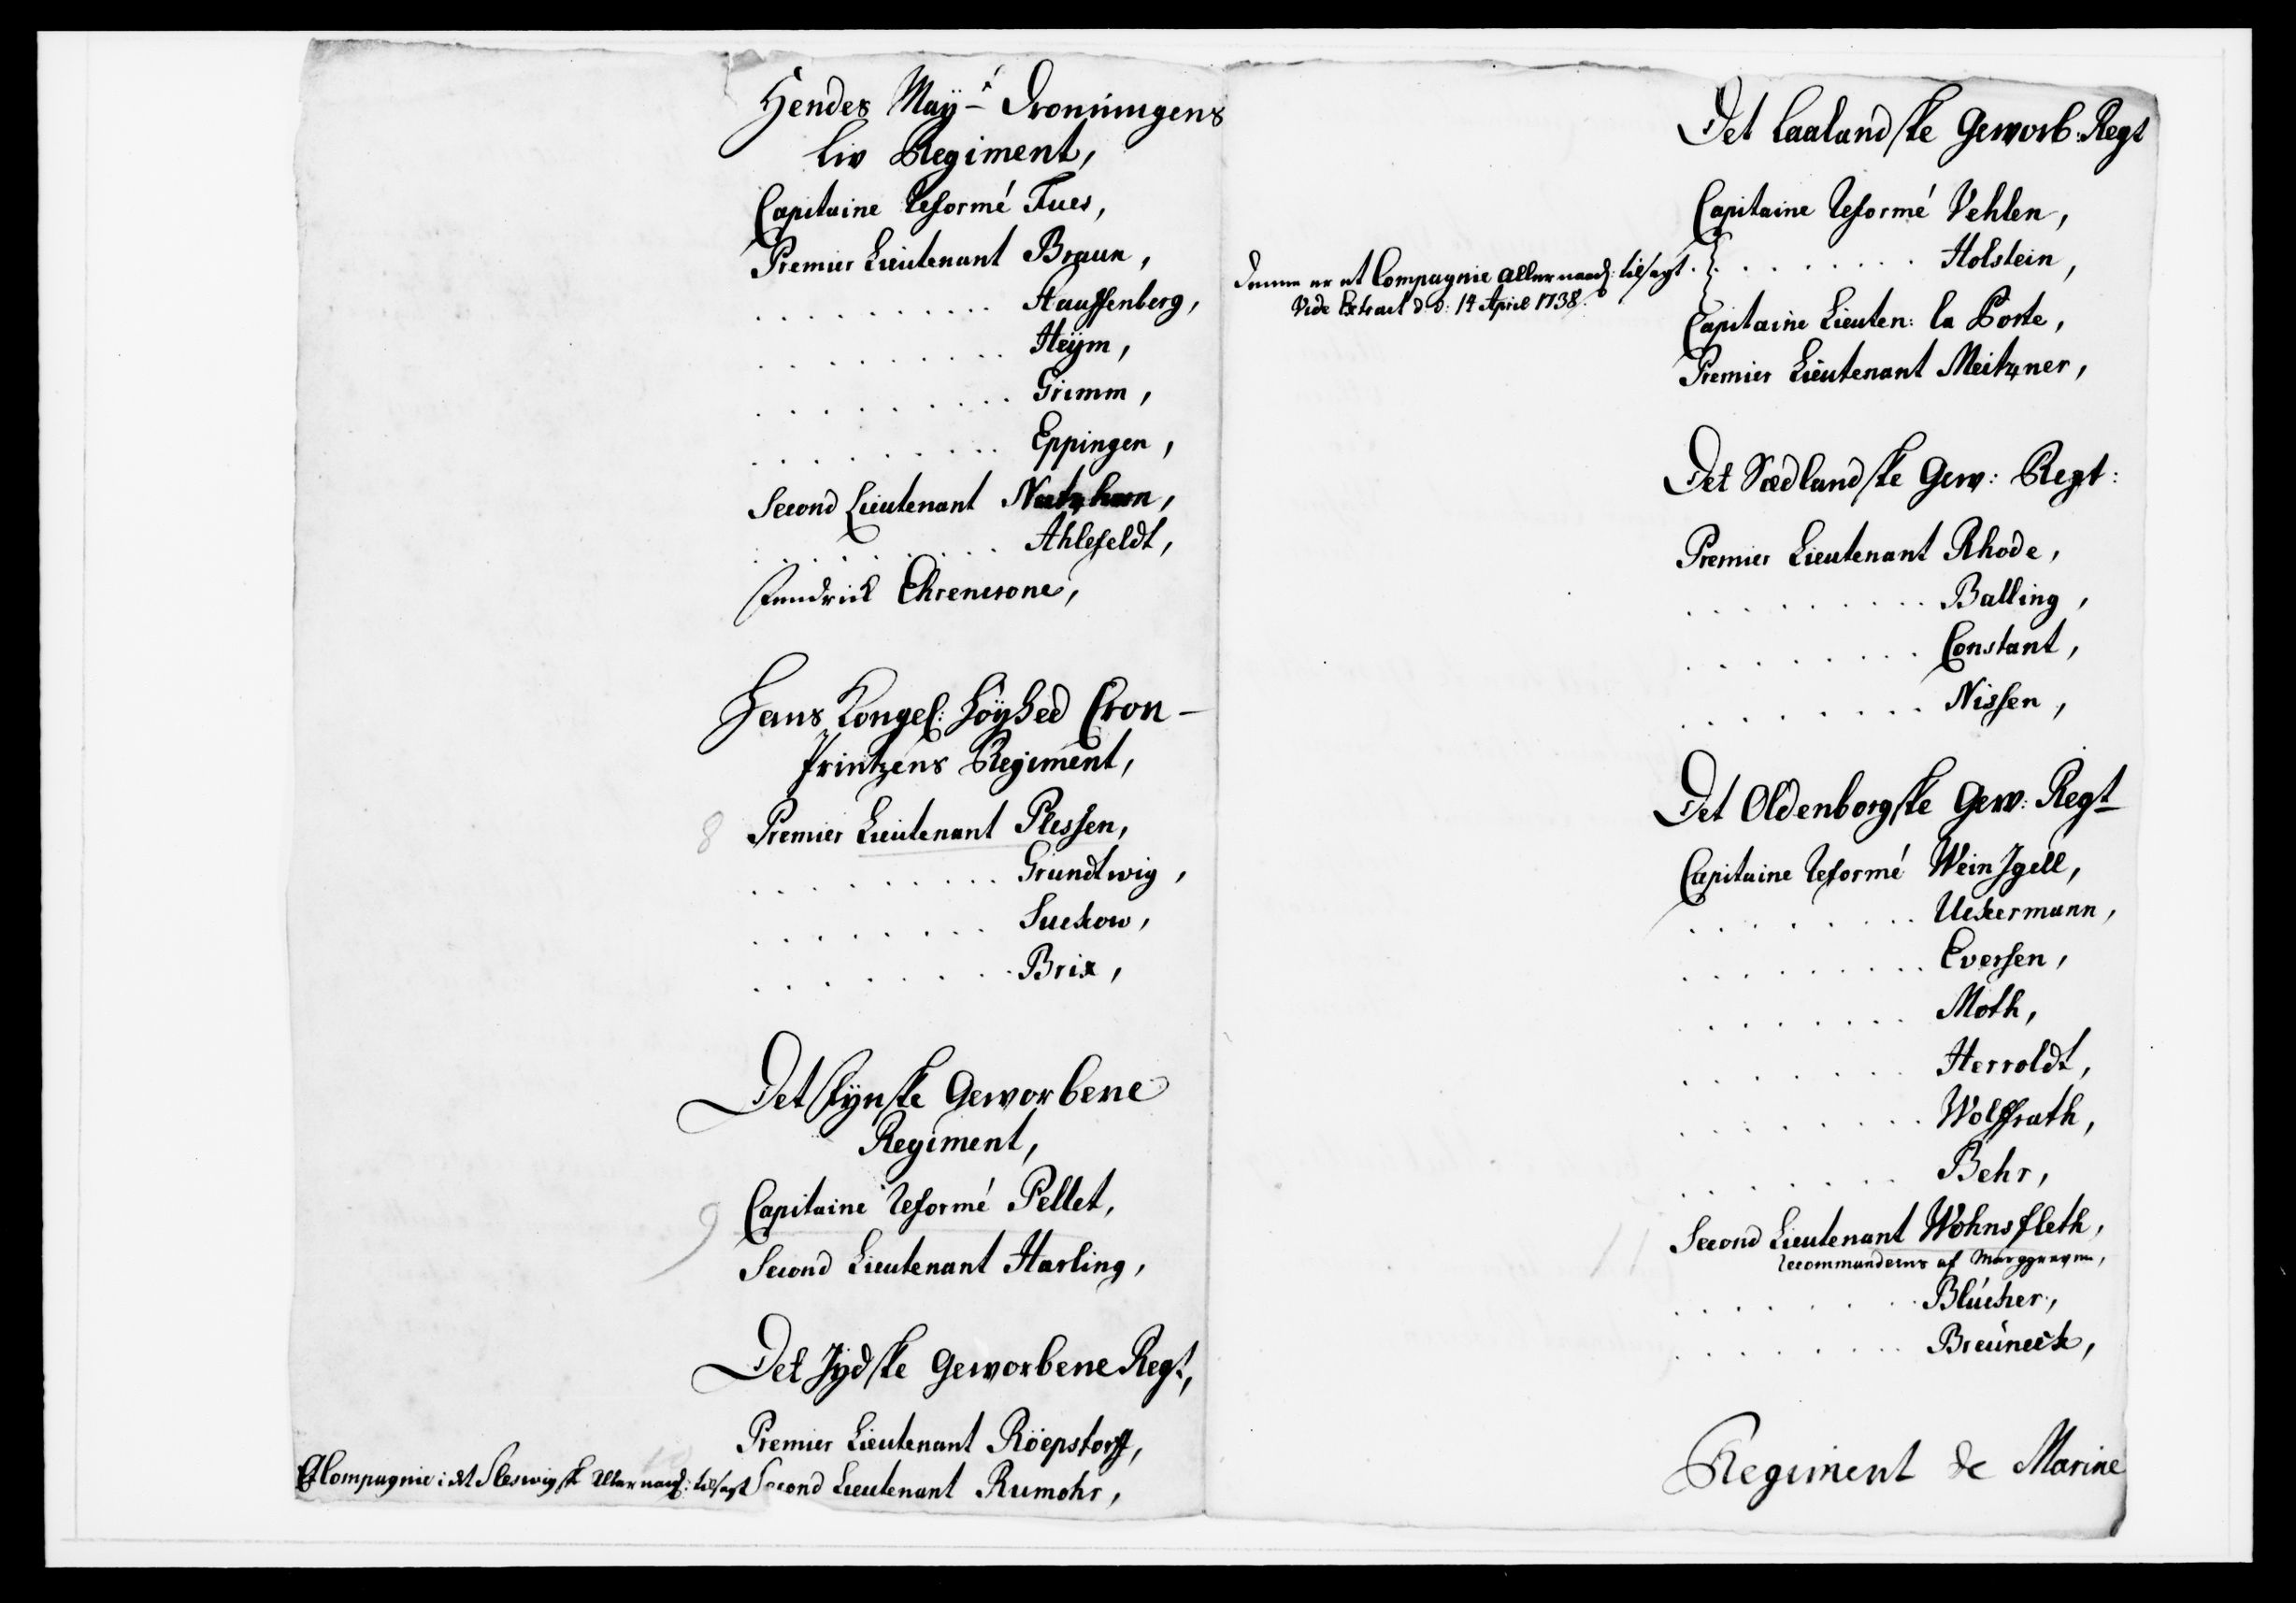 Hendes May:t Dronningens
Liv Regiment,
Capitaine Reformé Fues,
Premier Lieutenant Braun,
. . . . . . . . . . Stauffenberg,
. . . . . . . . . . Heÿm,
. . . . . . . . . . Grimm,
. . . . . . . . . . Eppingen,
Second Lieutenant
. . . . . . . . . . Ahlefeldt,
Fendrick Ehrencrone,
Hans Kongel: Höÿhed Cron-
Printzens Regiment,
8 Premier Lieutenant Plessen,
. . . . . . . . . . Grundtwig,
. . . . . . . . . . Suckow,
. . . . . . . . . . Brix,
Det Fÿnske Geworbene
Regiment,
9 Capitaine Reformé Pellet,
Second Lieutenant Harling,
Det Jÿdske Geworbene Regt,
Premier Lieutenant Röepstorff,
Et Compagnie i det Sleswigske allernaad: tilsagt Second Lieutenant Rumohr,
Det Laalandske Geworb: Regt
Capitaine Reformé Vehlen,
Denne er et Compagnie allernaad: tilsagt . . . . . . . . . . Holstein,
Vide Extract d: d: 14 April 1738.
Capitaine Lieuten: la Porte,
Premier Lieutenant Meitzner,
Det Sædlandske Gew: Regt:
Premier Lieutenant Rhode,
. . . . . . . . . . Balling,
. . . . . . . . . . Constant,
. . . . . . . . . . Nissen,
Det Oldenborgske Gew: Regt
Capitaine Reformé Wein Jgell,
. . . . . . . . . . Uckermann,
. . . . . . . . . . Eversen,
. . . . . . . . . . Moth,
. . . . . . . . . . Herroldt,
. . . . . . . . . . Wolffrath,
. . . . . . . . . . Behr,
11 Second Lieutenant Wohnsfleth,
recommanderes af Marggraven,
. . . . . . . . . . Blücher,
. . . . . . . . . . Breüneck,
Regiment de Marine